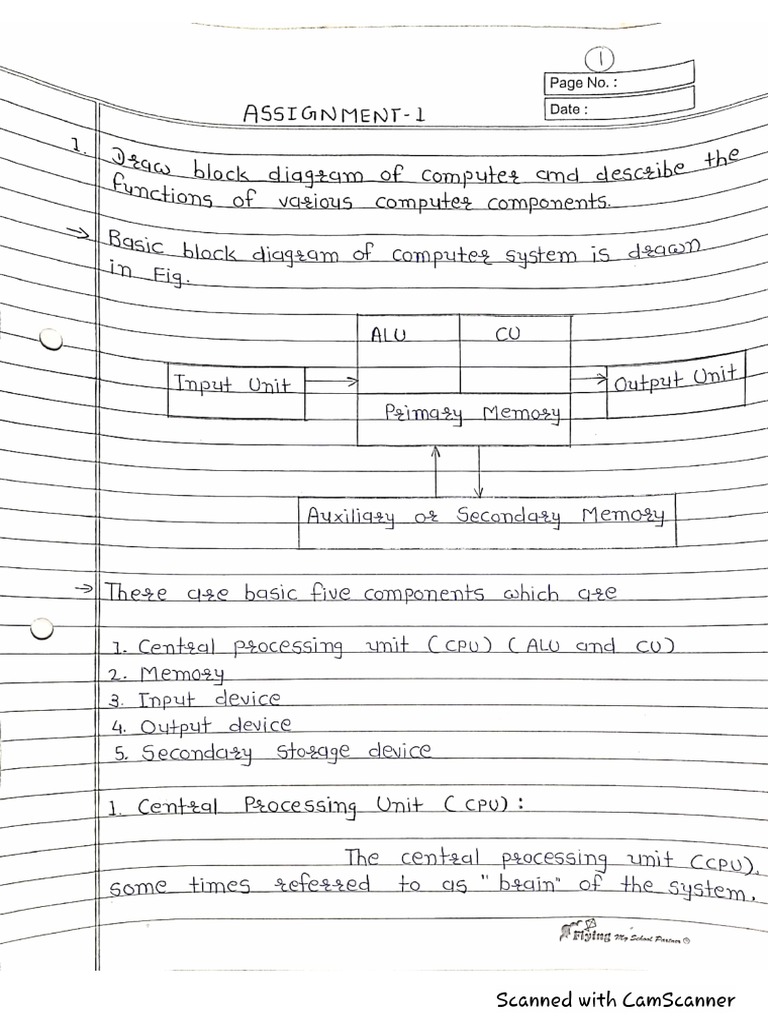 1
Page No. :
Date :
ASSIGNMENT-1
1. Draw block diagram of computer and describe the
functions of various computer components.
→ Basic block diagram of computer system is drawn
in Fig.
ALU CU
Input Unit
Output Unit
Primary Memory
Auxiliary or Secondary Memory
→ There are basic five components which are
1. Central processing unit (CPU) (ALU and CU)
2. Memory
3. Input device
4. Output device
5. Secondary storage device
1. Central Processing Unit (CPU):
The central processing unit (CPU),
some times referred to as "brain" of the system.
Flying My School Partner
Scanned with CamScanner